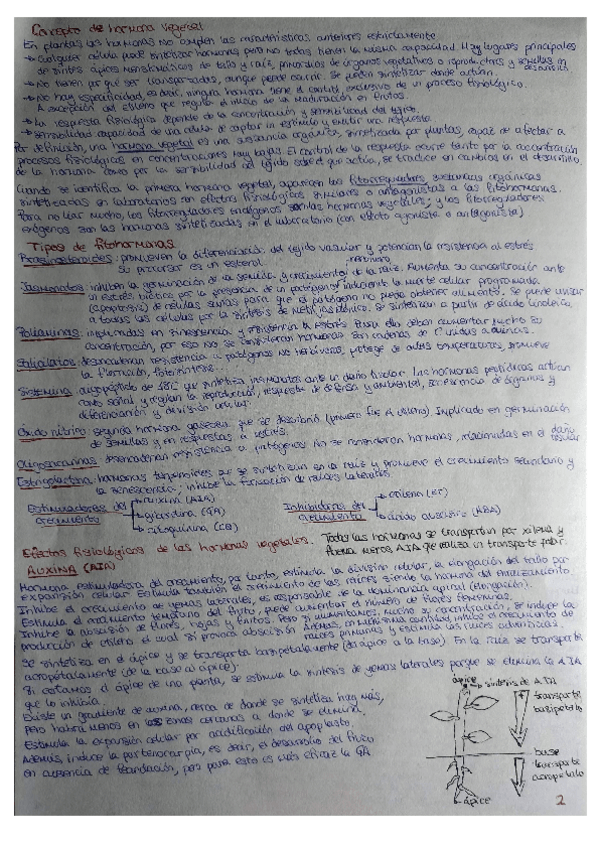 Concepto de hormona vegetal
En plantas las hormonas no cumplen las características anteriores estrictamente.
→ Cualquier célula puede sintetizar hormonas pero no todas tienen la misma capacidad. Hay lugares principales
de síntesis: ápices meristemáticos de tallo y raíz, primordios de órganos vegetativos o reproductores y semillas en desarrollo
→ No tienen por qué ser transportadas, aunque puede ocurrir. Se pueden sintetizar donde actúan.
→ No hay especificidad, es decir, ninguna hormona tiene el control exclusivo de un proceso fisiológico.
A excepción del etileno que regula el inicio de la maduración en frutos.
→ La respuesta fisiológica depende de la concentración y sensibilidad del tejido.
→ Sensibilidad: capacidad de una célula de captar un estímulo y emitir una respuesta.
Por definición, una hormona vegetal es una sustancia orgánica, sintetizada por plantas, capaz de afectar a
procesos fisiológicos en concentraciones muy bajas. El control de la respuesta ocurre tanto por la concentración
de la hormona como por la sensibilidad del tejido sobre el que actúa, se traduce en cambios en el desarrollo.
Cuando se identifica la primera hormona vegetal, aparecen los fitorreguladores, sustancias orgánicas
sintetizadas en laboratorios con efectos fisiológicos similares o antagonistas a las fitohormonas.
Para no liar mucho, los fitorreguladores endógenos son las hormonas vegetales; y los fitorreguladores
exógenos son las hormonas sintetizadas en el laboratorio (con efecto agonista o antagonista)
Tipos de fitohormonas
Brasinoesteroides: promueven la diferenciación del tejido vascular y potencian la resistencia al estrés
Su precursor es un esterol.
Jasmonatos: inhiben la germinación de la semilla y crecimiento de la raíz. Aumenta su concentración ante
un estrés biótico por la presencia de un patógeno induciendo la muerte celular programada
(apoptosis) de células sanas para que el patógeno no puede obtener alimento. Se puede avisar
a todas las células por la síntesis de metil jasmónico. Se sintetizan a partir de ácido linolénico.
Poliaminas: implicadas en senescencia y resistencia a estrés. Para ello deben aumentar mucho su
concentración, por eso no se consideran hormonas. Son cadenas de C unidas a aminas.
Salicilatos: desencadenan resistencia a patógenos no herbívoros, protege de altas temperaturas, promueve
la floración, fotosíntesis...
Sistemina: oligopéptido de 18C que sintetiza jasmonatos ante un daño tisular. Las hormonas peptídicas actúan
como señal y regulan la reproducción, respuesta de defensa y ambiental, senescencia de órganos y
diferenciación y división celular.
Óxido nítrico: segunda hormona gaseosa que se descubrió (primero fue el etileno). Implicado en germinación
de semillas y en respuestas a estrés.
Oligosacarinas: desencadenan resistencia a patógenos. No se consideran hormonas, relacionadas en el daño tisular
Estrigolactona: hormonas terpenoides que se sintetizan en la raíz y promueve el crecimiento secundario y
la senescencia; inhibe la formación de raíces laterales.
Estimuladores del crecimiento
→ auxina (AIA)
→ giberelina (GA)
→ citoquinina (CB)
Inhibidores de crecimiento
→ etileno (ET)
→ ácido abscísico (ABA)
Efectos fisiológicos de las hormonas vegetales. Todas las hormonas se transportan por xilema y
floema menos AIA que realiza un transporte polar.
AUXINA (AIA)
Hormona estimuladora del crecimiento, por tanto, estimula la división celular, la elongación del tallo por
expansión celular. Estimula también el crecimiento de las raíces siendo la hormona del enraizamiento.
Inhibe el crecimiento de yemas laterales, es responsable de la dominancia apical (elongación).
Estimula el crecimiento temprano del fruto, puede aumentar el número de flores femeninas.
Inhibe la abscisión de flores, hojas y frutos. Pero si aumentamos mucho su concentración, se induce la
producción de etileno el cual sí provoca abscisión. Además, en muchísima cantidad inhibe el crecimiento de
raíces primarias y estimula las raíces adventicias.
Se sintetiza en el ápice y se transporta basipetalamente (del ápice a la base). En la raíz se transporta
acropétalamente (de la base al ápice).
Si cortamos el ápice de una planta, se estimula la síntesis de yemas laterales porque se elimina la AIA
que lo inhibía.
Existe un gradiente de auxina, cerca de donde se sintetiza hay más,
pero habrá menos en las zonas cercanas a donde se elimina.
Estimula la expansión celular por acidificación del apoplasto.
Además, induce la partenocarpia, es decir, el desarrollo del fruto
en ausencia de fecundación, pero para esto es más eficaz la GA
ápice
→ síntesis de AIA
transporte
basípeto
base
transporte
acropétalo
ápice
2